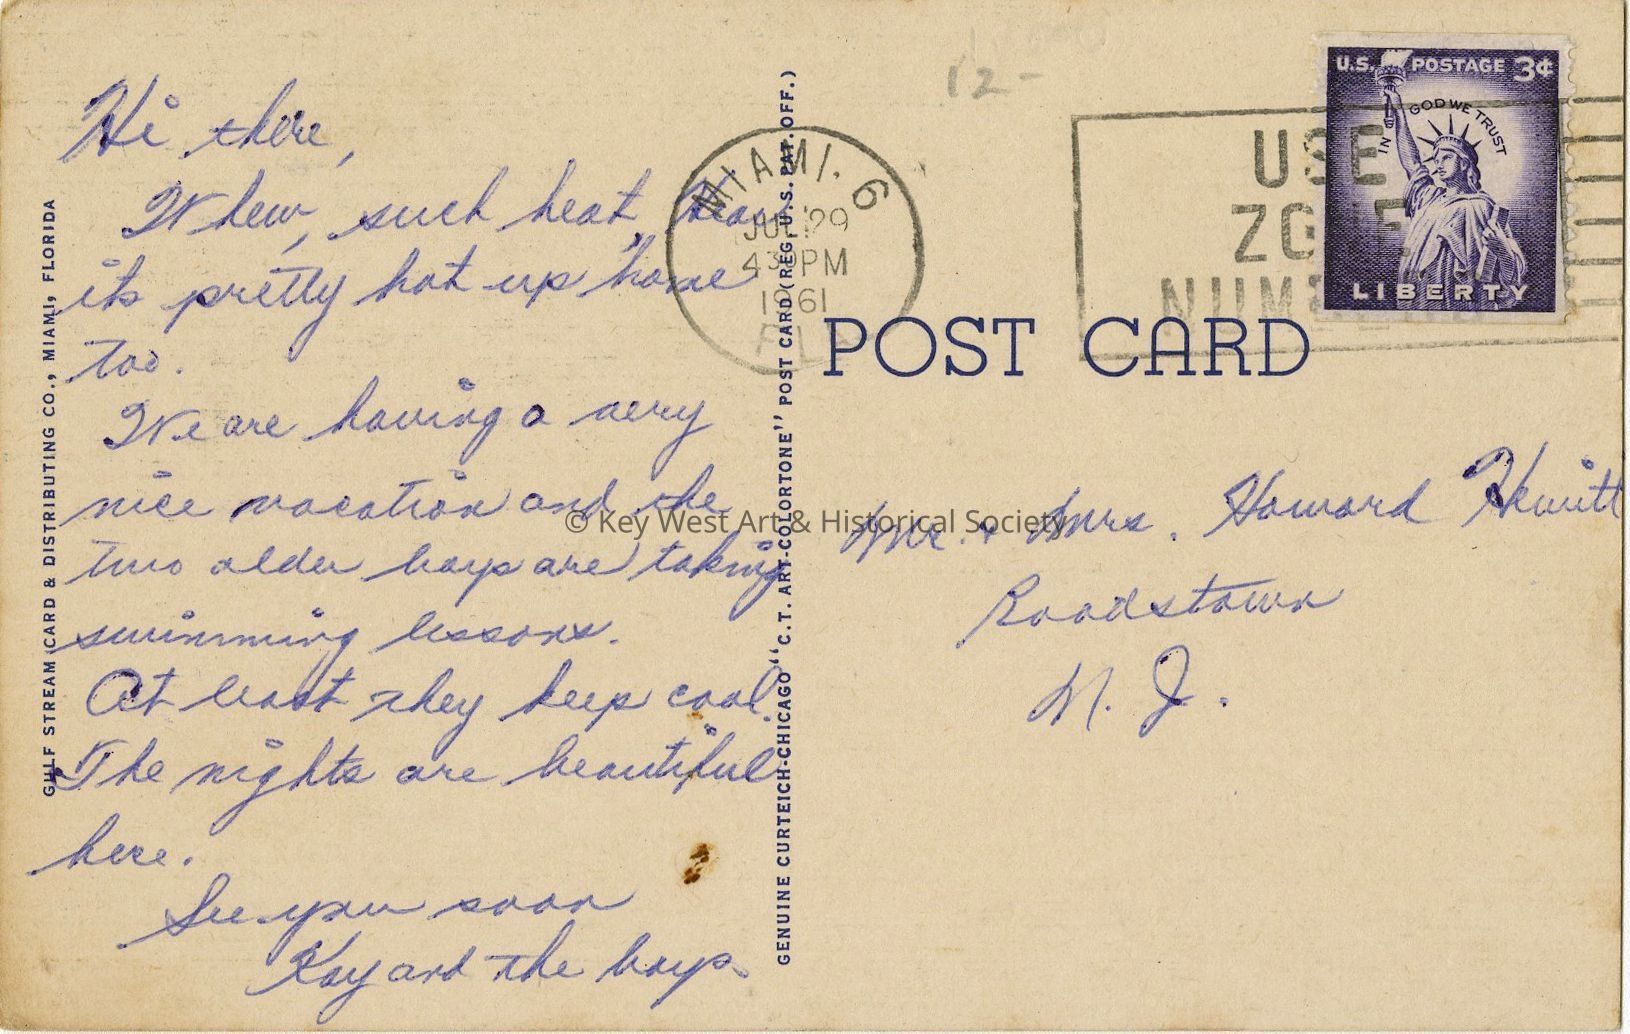 Hi there,
Whew, such heat, hear
its pretty hot up home
too.
We are having a very
nice vacation and the
two older boys are taking
swimming lessons.
At least they keep cool.
The nights are beautiful
here.
See you soon
Kay and the boys.
GULF STREAM CARD & DISTRIBUTING CO., MIAMI, FLORIDA
GENUINE CURTEICH-CHICAGO "C.T. ART-COLORTONE" POST CARD (REG. U.S. PAT. OFF.)
12-
MIAMI. 6
JUL 29
430PM
1961
FLA
USE
NUM
U.S. POSTAGE 3¢
IN GOD WE TRUST
LIBERTY
POST CARD
Mr. + Mrs. Howard Hewitt
Roadstown
N. J.
© Key West Art & Historical Society